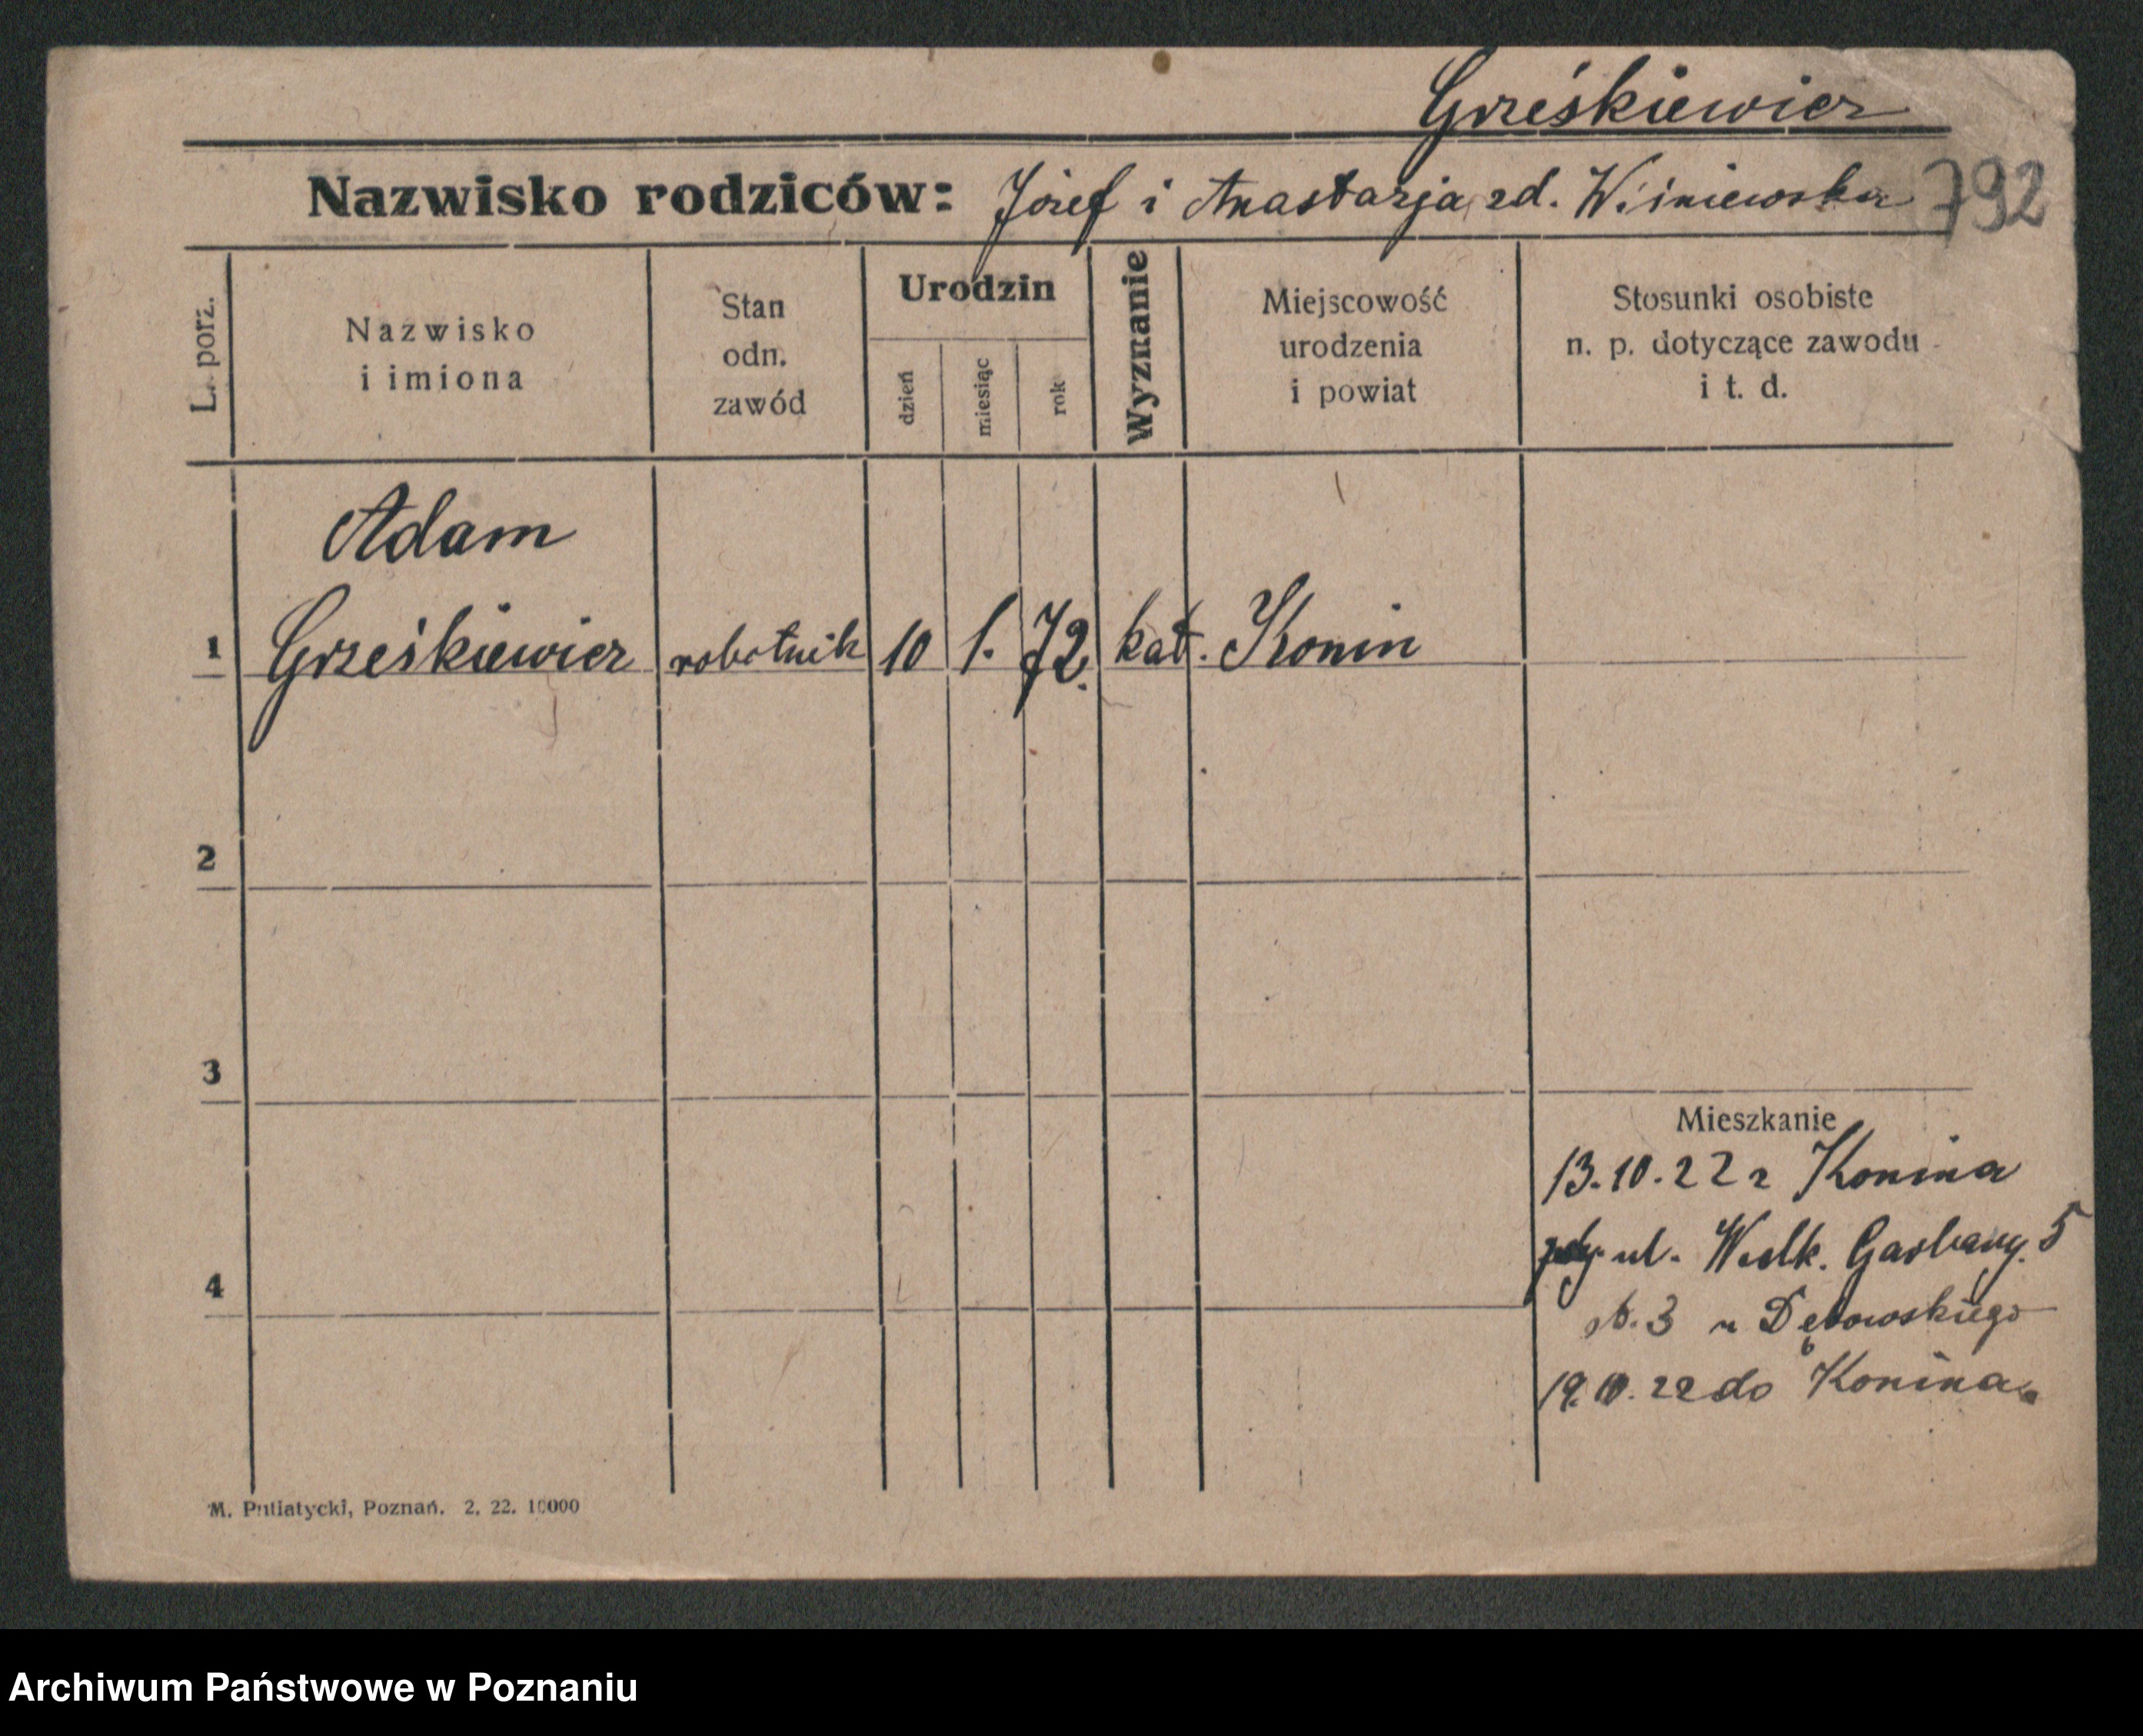 Grześkiewicz
Nazwisko rodziców: Józef i Anastazja, zd. Wiśniewska 792
L. porz.
Nazwisko
i imiona
Stan
odn.
zawód
Urodzin
dzień
miesiąc
rok
Wyznanie
Miejscowość
urodzenia
i powiat
Stosunki osobiste
n. p. dotyczące zawodu
i t. d.
Adam
1 Grześkiewicz robotnik 10 1. 72. kat. Konin
2
3
Mieszkanie
13.10.22 z Konina
ul. Wielk. Garbary. 5
4
3 u Dębowskiego
19.10.22 do Konina
M. Putiatycki, Poznań. 2. 22. 10000
Archiwum Państwowe w Poznaniu